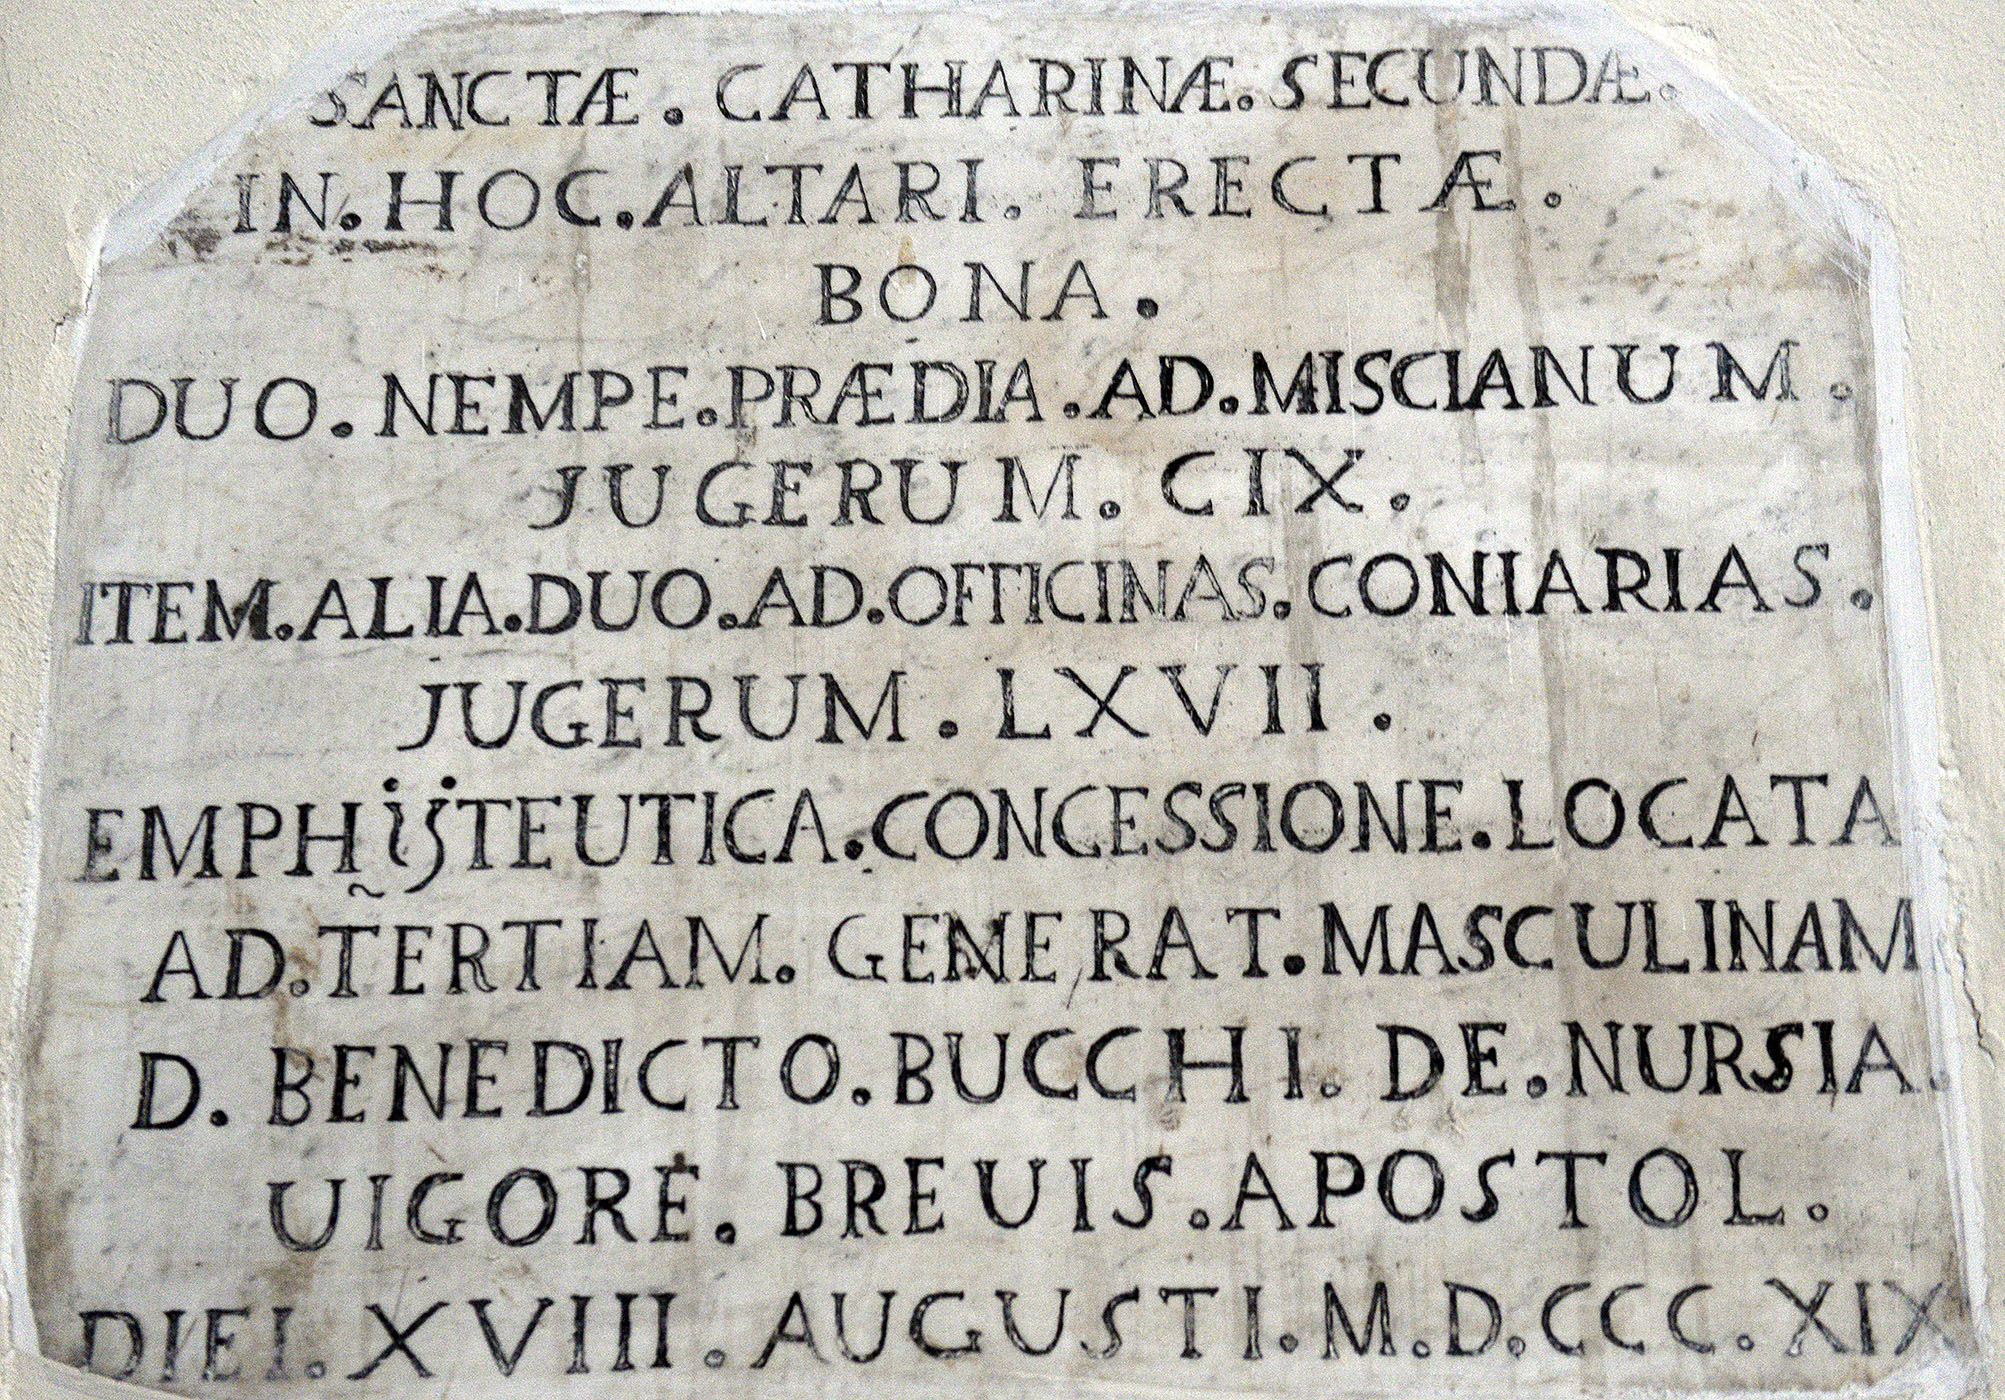 SANCTÆ. CATHARINÆ. SECUNDÆ.
IN. HOC. ALTARI. ERECTÆ.
BONA.
DUO. NEMPE. PRÆDIA. AD. MISCIANUM.
JUGERUM. CIX.
ITEM. ALIA. DUO. AD. OFFICINAS. CONIARIAS.
JUGERUM. LXVII.
EMPHijTEUTICA. CONCESSIONE. LOCATA
AD. TERTIAM. GENERAT. MASCULINAM
D. BENEDICTO. BUCCHI. DE. NURSIA.
UIGORE. BREUIS. APOSTOL.
DIEI. XVIII. AUGUSTI. M. D. CCC. XIX